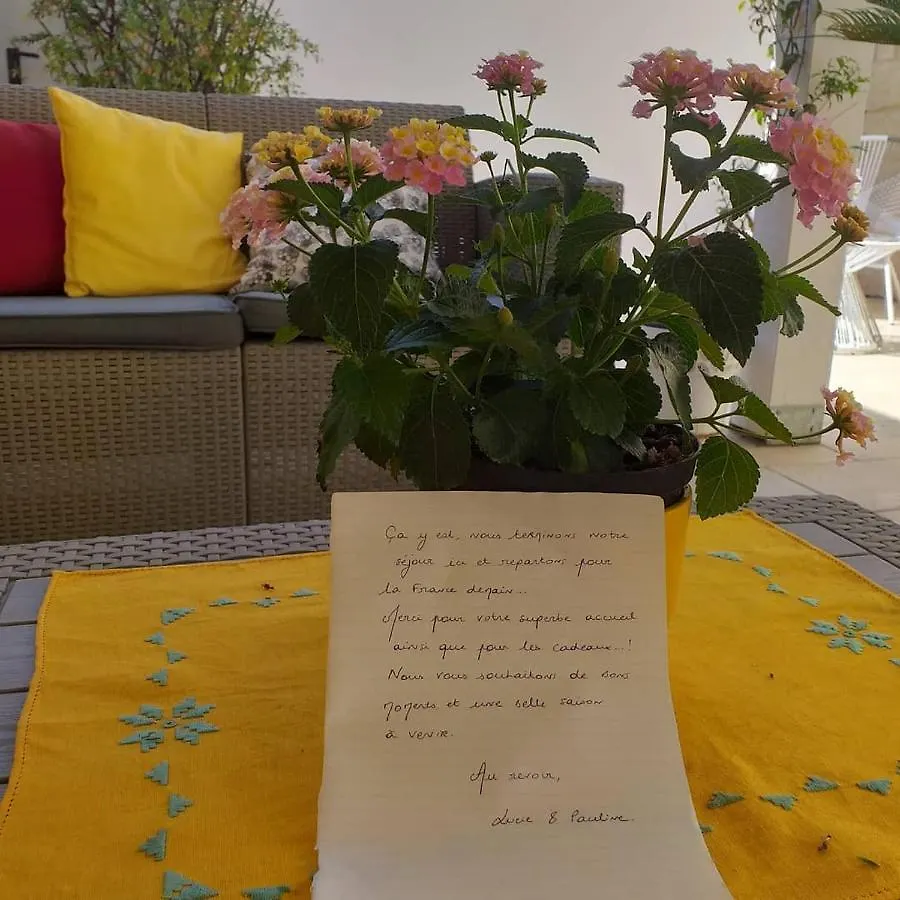 Ça y est, nous terminons notre
séjour ici et repartons pour
la France demain...
Merci pour votre superbe accueil
ainsi que pour les cadeaux...!
Nous vous souhaitons de bons
moments et une belle saison
à venir.
Au revoir,
Lucie & Pauline.